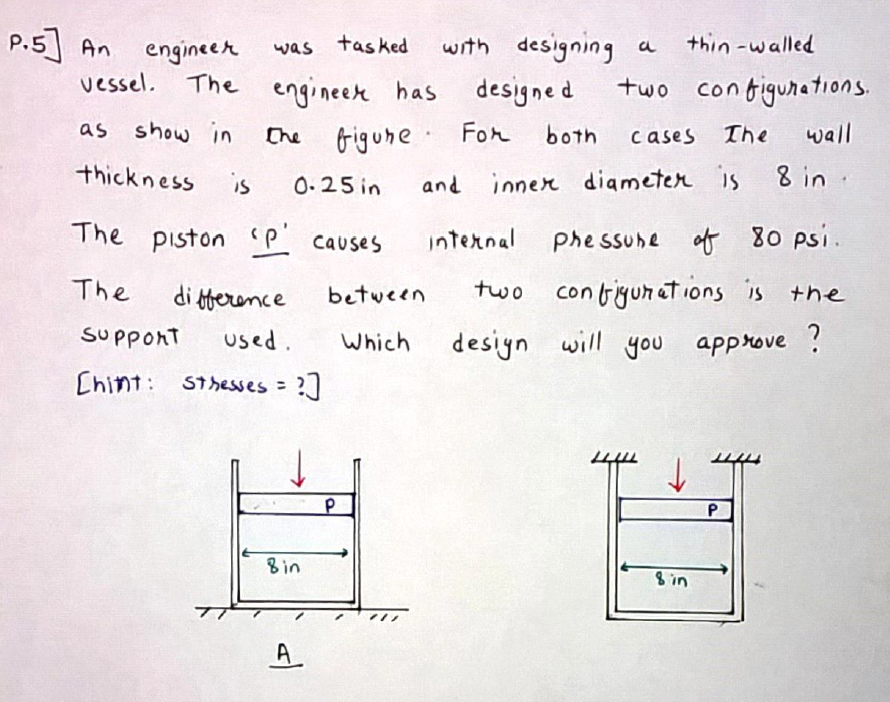 P.5] An engineer was tasked with designing a thin-walled
vessel. The engineer has designed two configurations.
as show in the figure. For both cases The wall
thickness is 0.25in and inner diameter is 8 in.
The piston 'p' causes internal pressure of 80 psi.
The difference between two configurations is the
support used. Which design will you approve ?
[hint: stresses = ?]
P
8 in
A
P
8 in